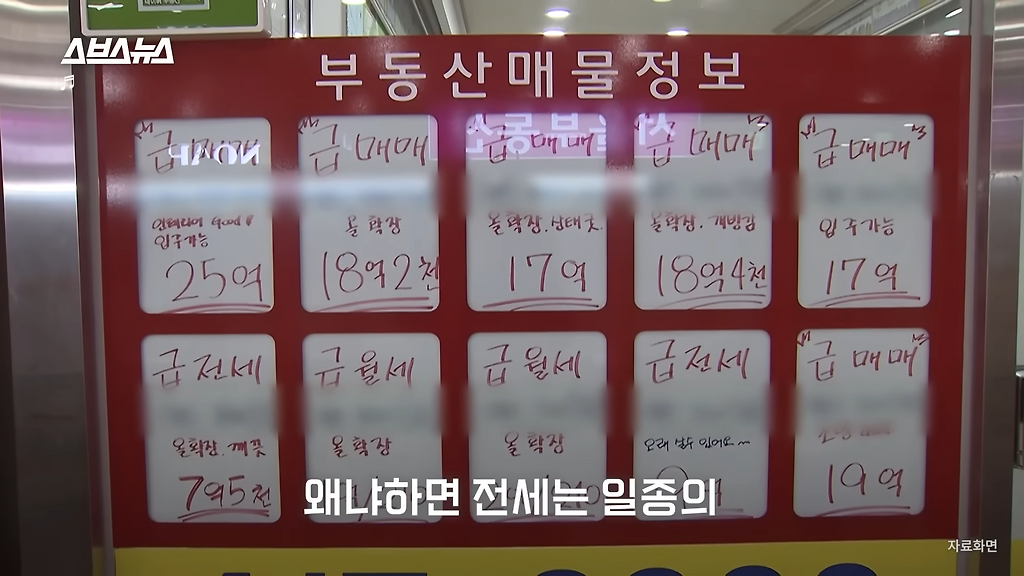 스브스뉴스
부동산매물정보
급매매
인테리어 Good
입주가능
25억
급매매
올확장
18억2천
급매매
올확장.상태굿
17억
급매매
올확장.개방감
18억4천
급매매
입주가능
17억
급전세
올확장.깨끗
7억5천
급월세
올확장
급월세
올확장
급전세
오래 살수 있어요~
급매매
19억
왜냐하면 전세는 일종의
자료화면